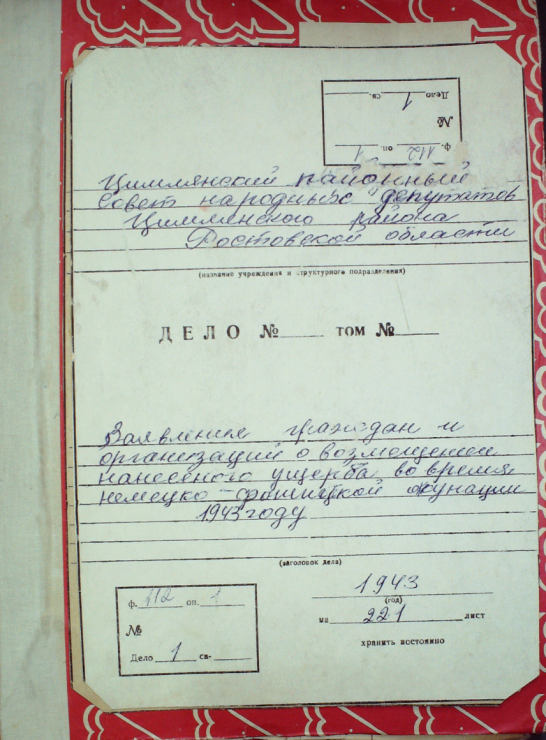 Дело 1 св.
№
ф. 112 оп. 1
Цимлянский районный
Совет народных депутатов
Цимлянского района
Ростовской области
(название учреждения и структурного подразделения)
ДЕЛО № ТОМ №
Заявления граждан и
организаций о возмощении
нанесённого ущерба во время
немецко-фашисткой окупации
1943 году
(заголовок дела)
ф. 112 оп. 1
№
Дело 1 св-
1943
(год)
на 221 лист
хранить постоянно